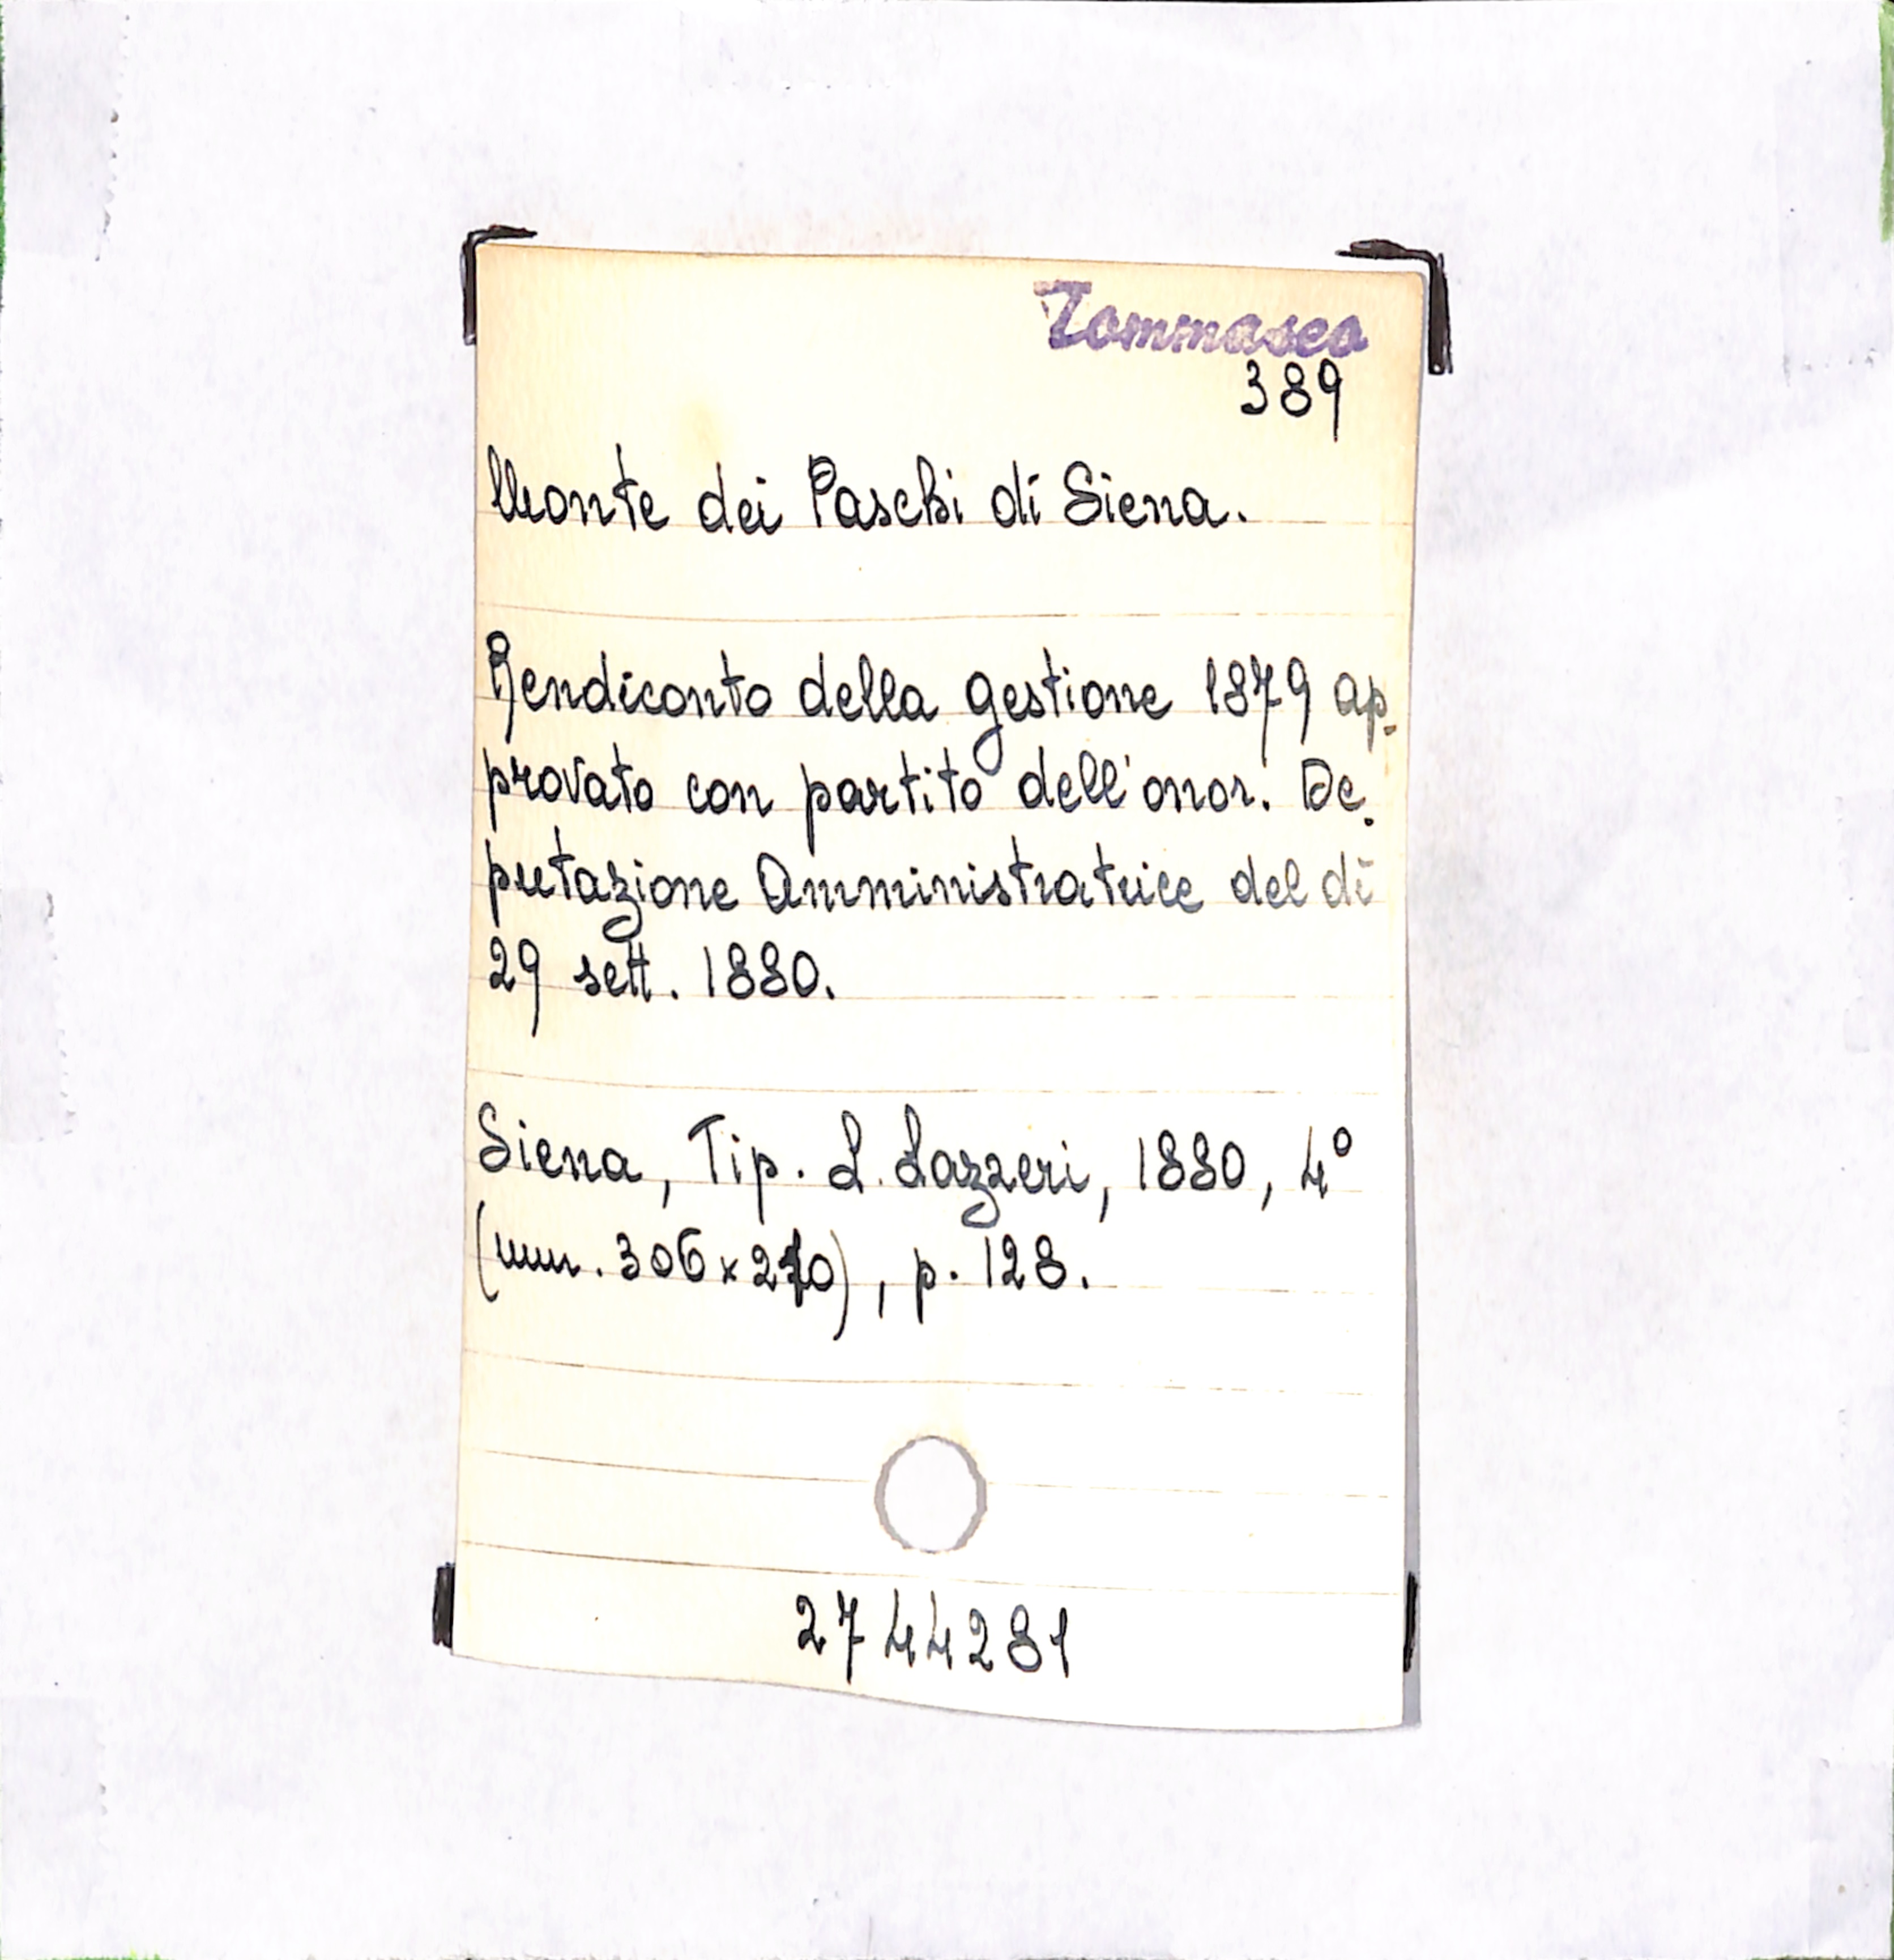 Tommaseo
389
Monte dei Paschi di Siena.
Rendiconto della gestione 1879 ap-
provato con partito dell'onor. De-
putazione Amministratrice del dì
29 sett. 1880.
Siena, Tip. L. Lazzeri, 1880, 4°
(mm. 306x210), p. 128.
2744281